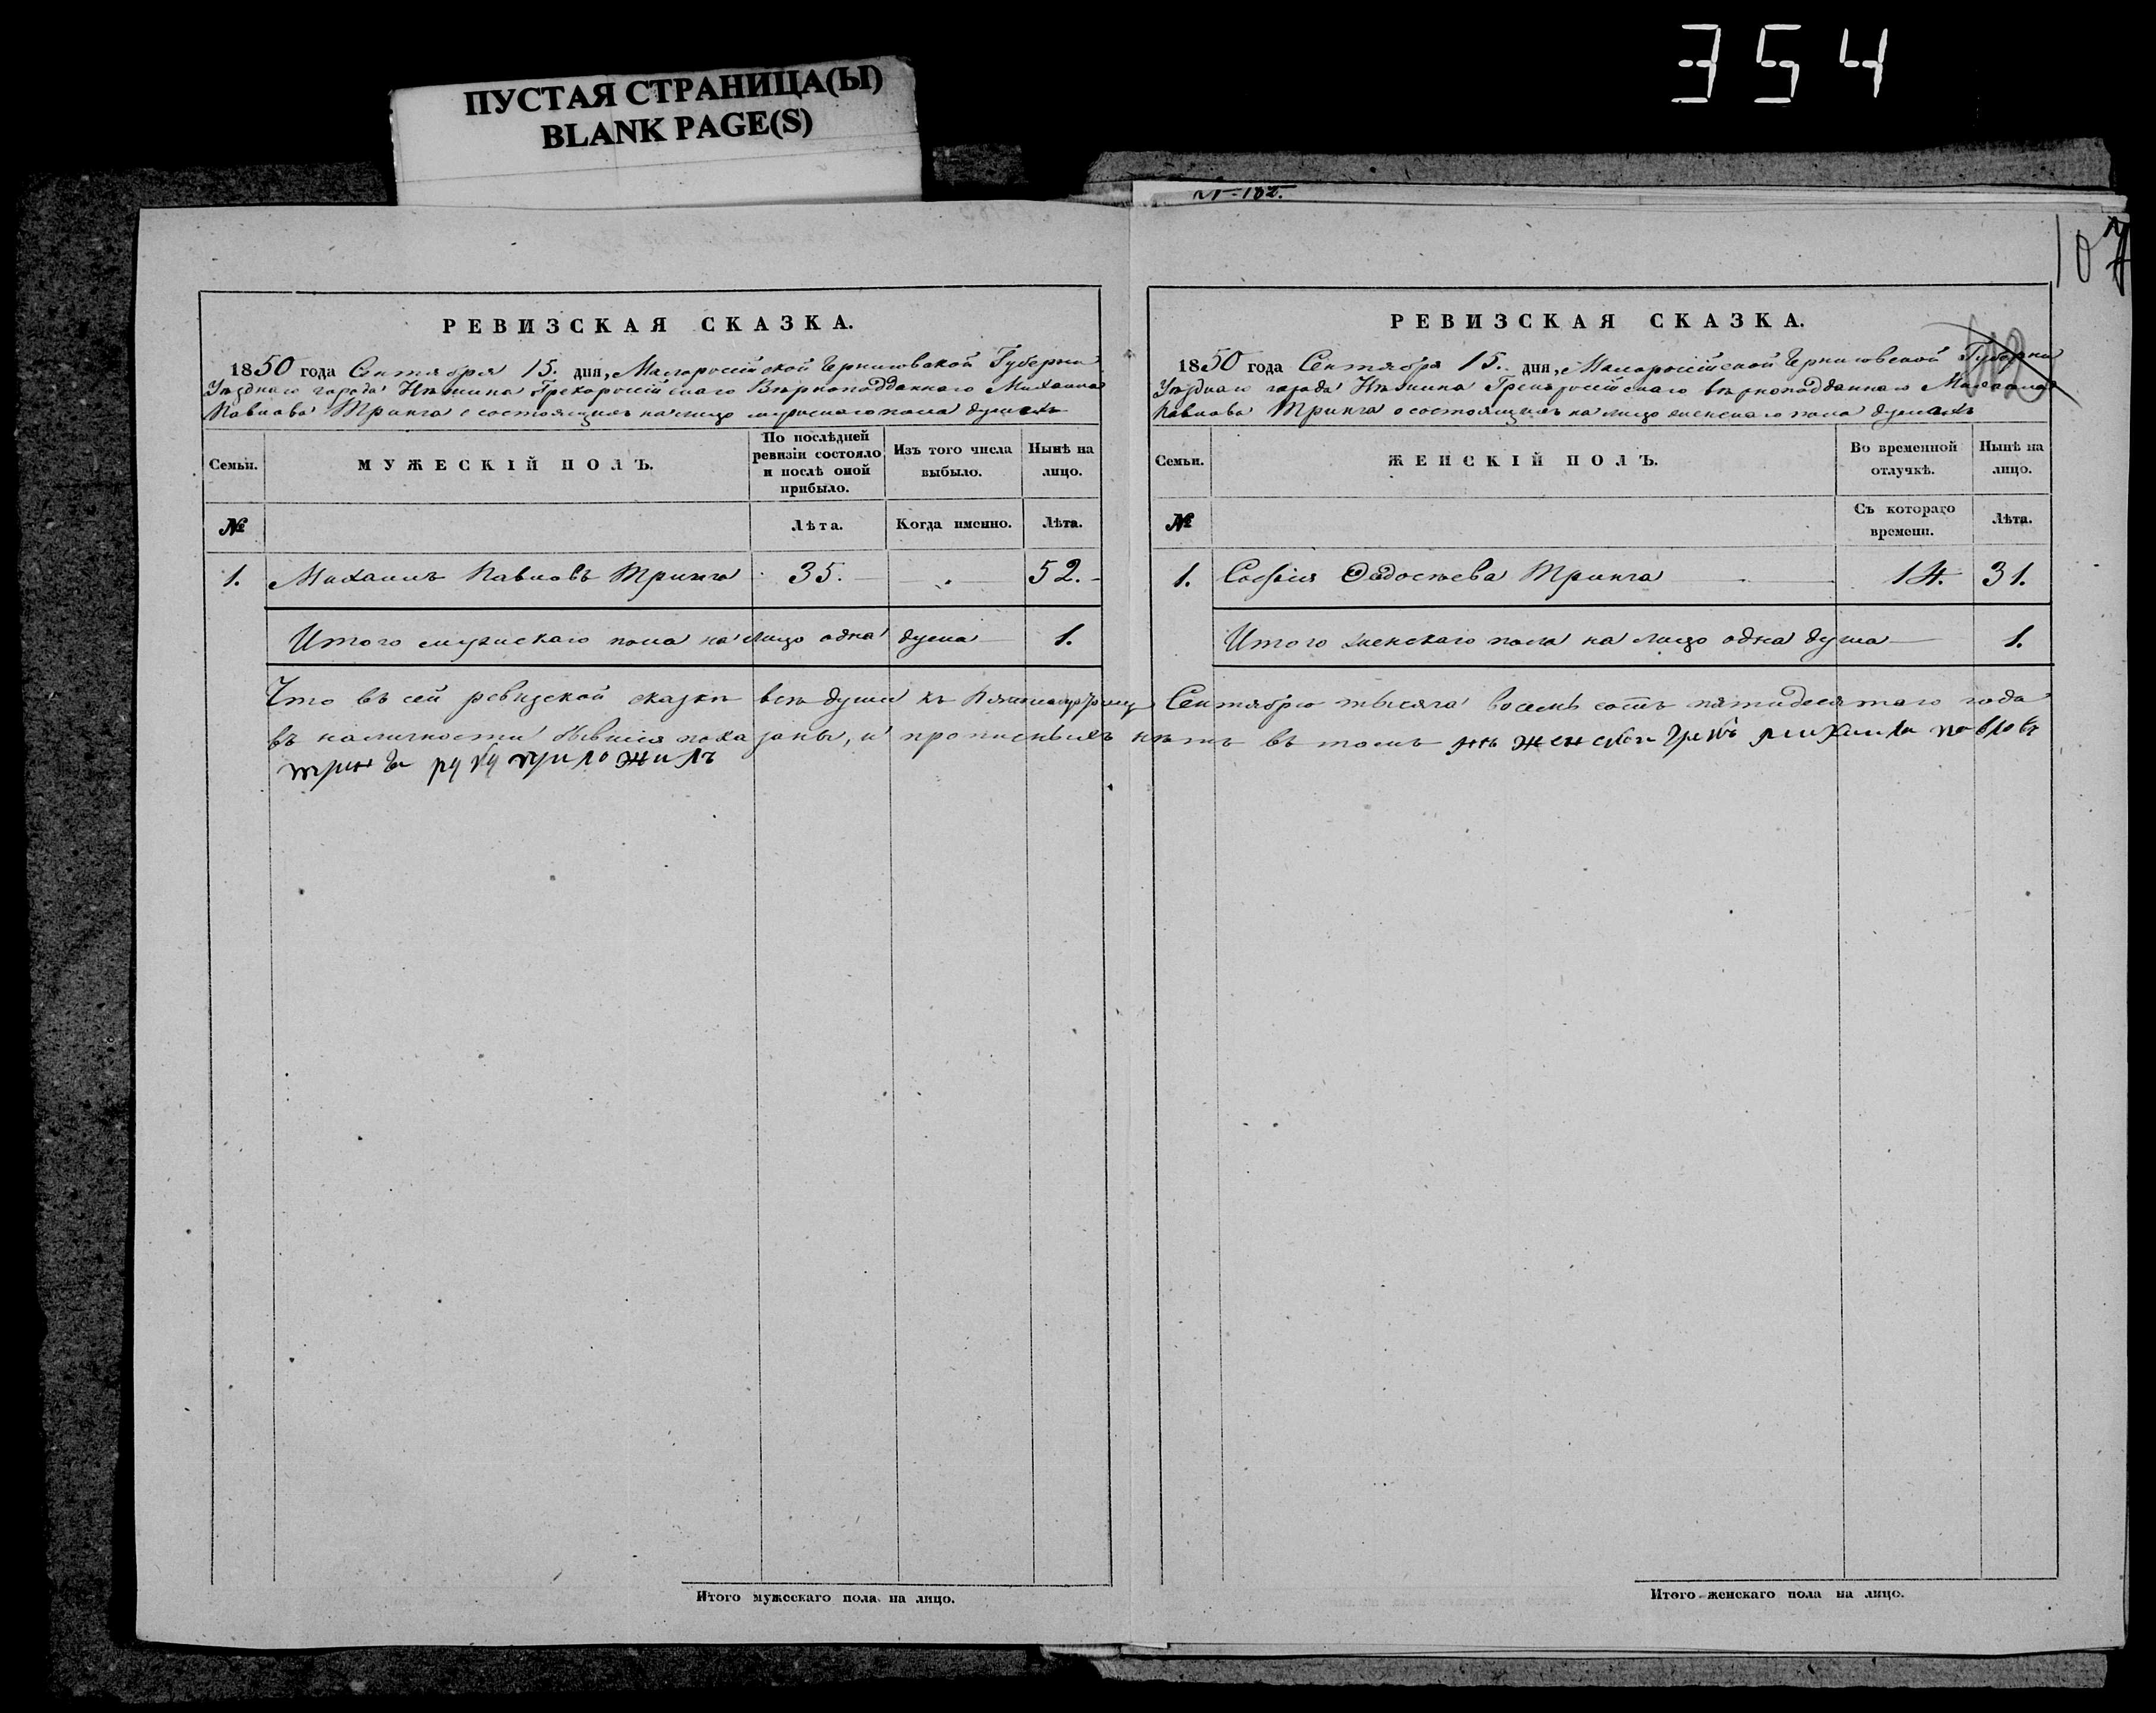 354
ПУСТАЯ СТРАНИЦА(Ы)
BLANK PAGE(S)
107
РЕВИЗСКАЯ СКАЗКА.
1850 года Сентября 15. дня, Малороссійской Черниговской Губерніи
Уѣзднаго города Нѣжина Грекороссійскаго Вѣрноподданнаго Михаила
Павлова Тринга о состоящихъ на лицо мужескаго пола душахъ
Семьи.
МУЖЕСКІЙ ПОЛЪ.
По послѣдней ревизіи состояло и послѣ оной прибыло.
Изъ того числа выбыло.
Нынѣ на лицо.
№
Лѣта.
Когда именно.
Лѣта.
1. Михаилъ Павловъ Тринга 35. 52.
Итого мужескаго пола на лицо одна душа 1.
РЕВИЗСКАЯ СКАЗКА.
1850 года Сентября 15. дня, Малороссійской Черниговской Губерніи
Уѣзднаго города Нѣжина Грекороссійскаго вѣрноподданнаго Михаила
Павлова Тринга о состоящихъ на лицо женскаго пола душахъ
Семьи.
ЖЕНСКІЙ ПОЛЪ.
Во временной отлучкѣ.
Нынѣ на лицо.
№
Съ котораго времени.
Лѣта.
1. Софія Тринга 14. 31.
Итого женскаго пола на лицо одна душа 1.
Что въ сей ревизской сказкѣ всѣ души къ Сентябрю тысяча восемь сотъ пятидесятаго года
въ наличности бывшія показаны, и прописныхъ нѣтъ въ томъ павловъ
руку приложилъ
Итого мужескаго пола на лицо.
Итого женскаго пола на лицо.